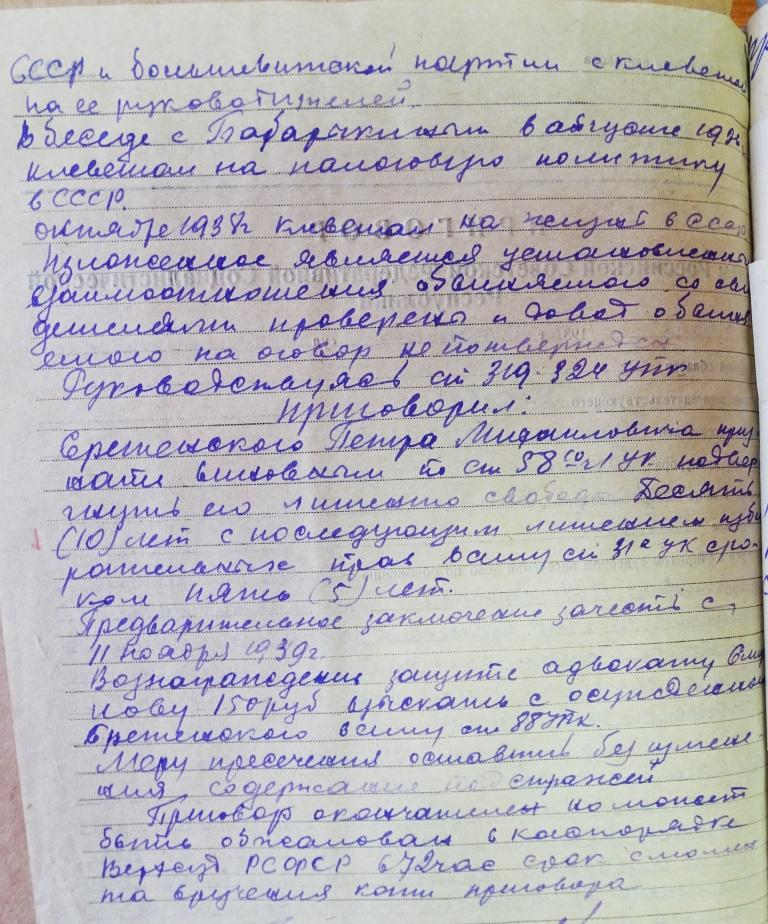 СССР и большевитской партии с клеветой
на ее руководителей.
В беседе с Бабарыкиным в августе 193
клеветал на налоговую политику
в СССР.
октябре 1938г клеветал на жизнь в СССР
Изложенное является установленным
Взаимоотношения обвиняемого со сви
детелями проверены и довод обвиня
емого на оговор не потвержден
Руководствуясь ст 319-324 УПК
приговорил:
Сретенского Петра Михаиловича приз
нать виновным по ст 58 10 ч1 УК подвер
гнуть его лишению свободы Десять
(10) лет с последующим лишением изби
рательных прав в силу ст 31а УК сро-
ком пять (5) лет.
Предварительное заключение зачесть с
11 ноября 1939г.
Вознаграждение защите адвокату
нову 150 руб взыскать с осужденного
Сретенского в силу ст 88 УПК.
Меру пресечения оставить без измене-
ния, содержание под стражей
Приговор окончателен но может
быть обжалован в каспорядке
Верхсуд РСФСР в 72 час срок с момен
та вручения копи приговора